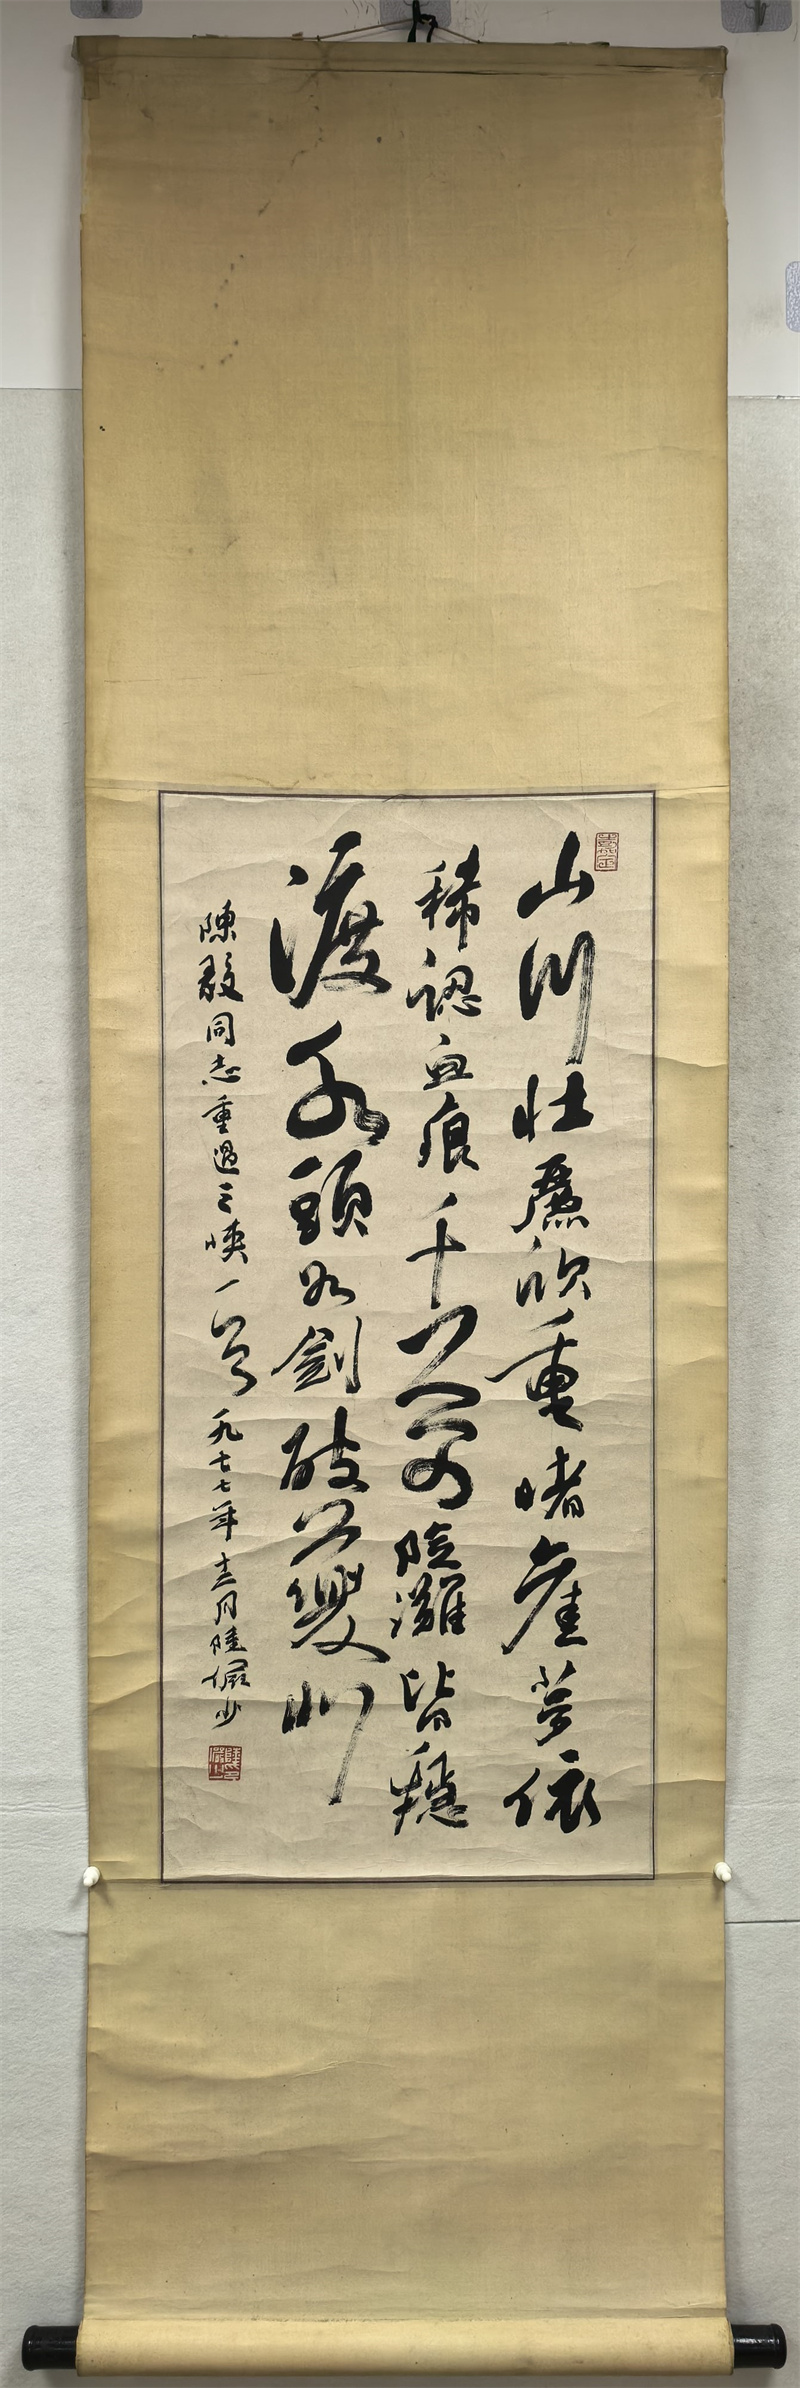 山川壯麗欣重睹崖依
稀認血痕千萬險灘皆穩
渡水頭如劍破夔門
陳毅同志重過三峽一首 一九七七年十二月陸儼少